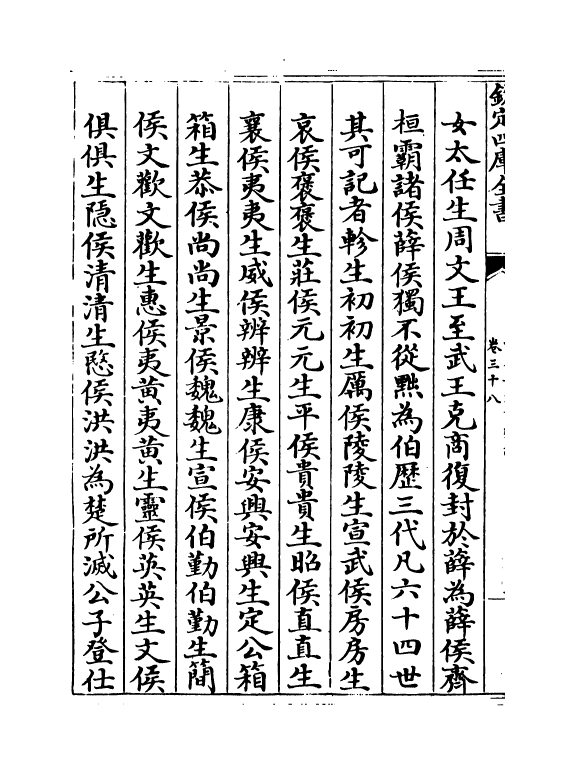 欽定四庫全書
卷三十八
女太任生周文王至武王克商復封於薛為薛侯齊
桓霸諸侯薛侯獨不從黜為伯歴三代凡六十四世
其可記者軫生初初生厲侯陵陵生宣武侯房房生
哀侯褒褒生莊侯元元生平侯貴貴生昭侯直直生
襄侯夷夷生威侯辨辨生康侯安興安興生定公箱
箱生恭侯尚尚生景侯魏魏生宣侯伯勤伯勤生簡
侯文歡文歡生惠侯夷黄夷黄生靈侯英英生文侯
俱俱生隠侯清清生愍侯洪洪為楚所滅公子登仕